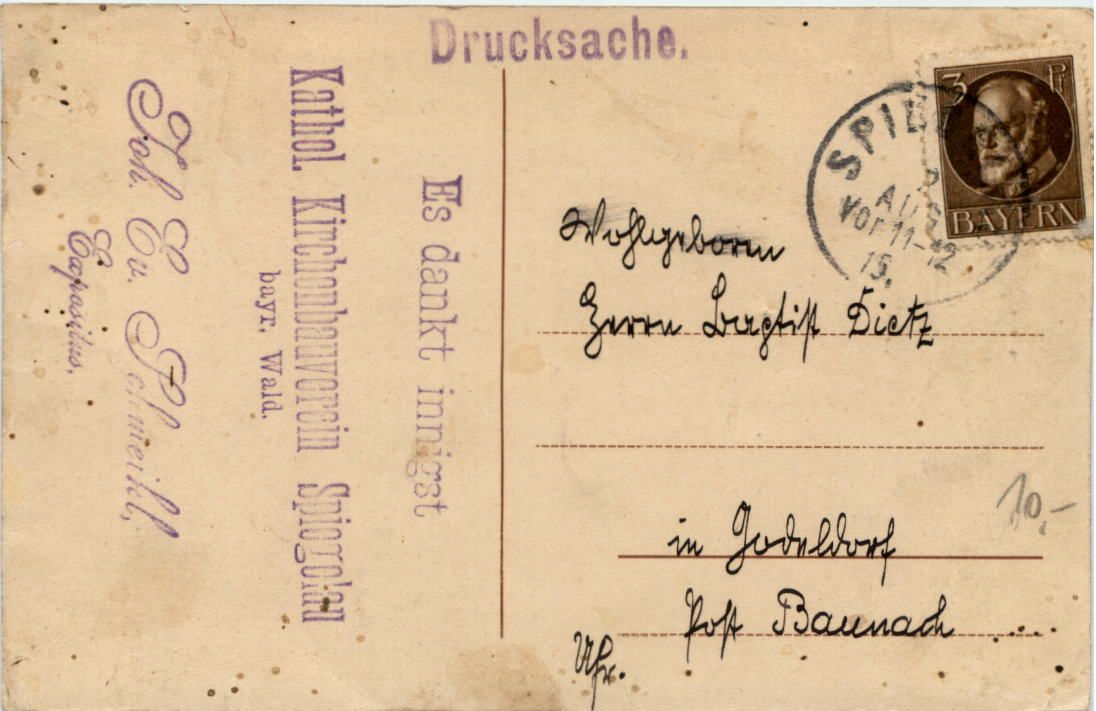 Drucksache.
Es dankt innigst
Kathol. Kirchenbauverein Spiegelau
bayr. Wald.
Joh. Ev. Schmeikl,
Expositus.
3 Pf
BAYERN
SPIE
AUG
Vor 11-12
15.
Wohlgeboren
Herrn Baptist Dietz
in Godeldorf
Post Baunach
Ufr.
10.-